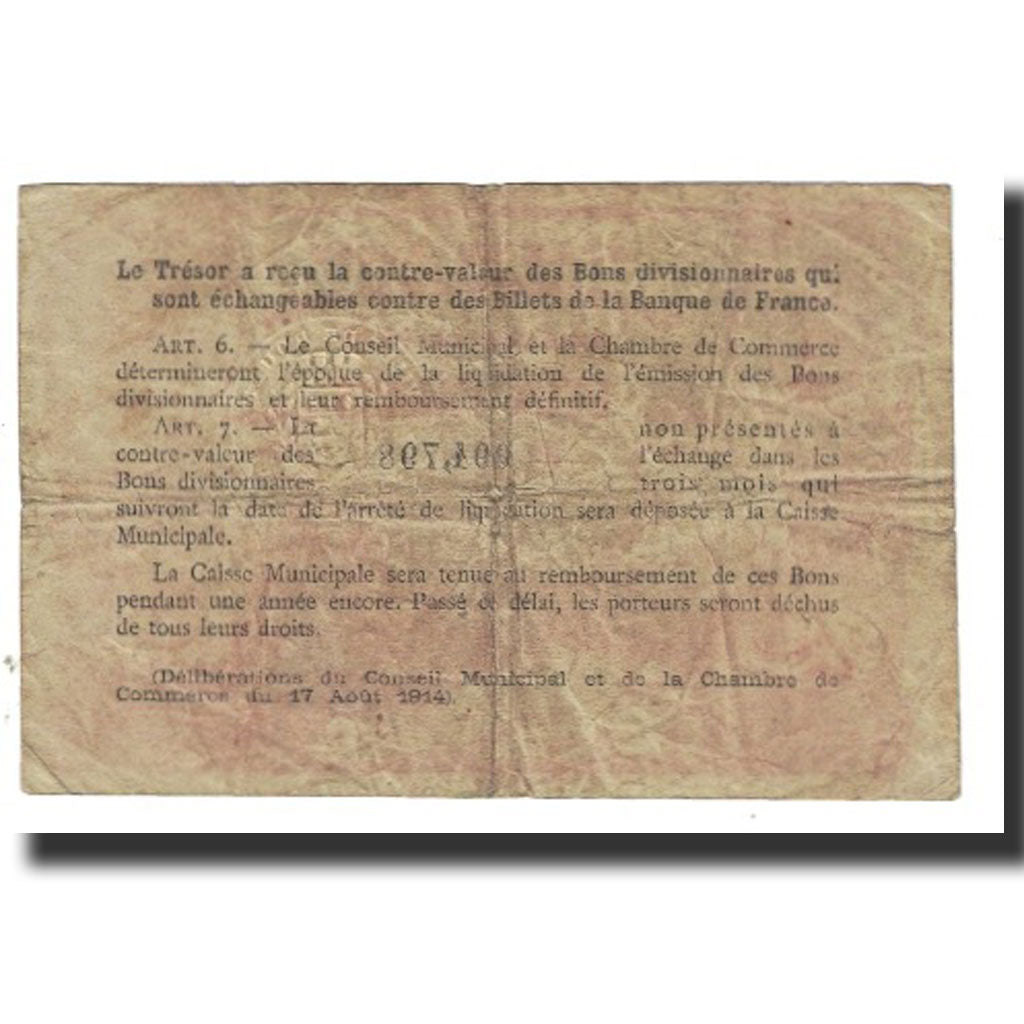 Le Trésor a reçu la contre-valeur des Bons divisionnaires qui
sont échangeables contre des Billets de la Banque de France.
ART. 6. — Le Conseil Municipal et la Chambre de Commerce
détermineront l'époque de la liquidation de l'émission des Bons
divisionnaires et leur remboursement définitif.
ART. 7. — La non présentés à
contre-valeur des l'échange dans les
Bons divisionnaires trois mois qui
suivront la date de l'arrêté de liquidation sera déposée à la Caisse
Municipale.
La Caisse Municipale sera tenue au remboursement de ces Bons
pendant une année encore. Passé ce délai, les porteurs seront déchus
de tous leurs droits.
(Délibérations du Conseil Municipal et de la Chambre de
Commerce du 17 Août 1914).